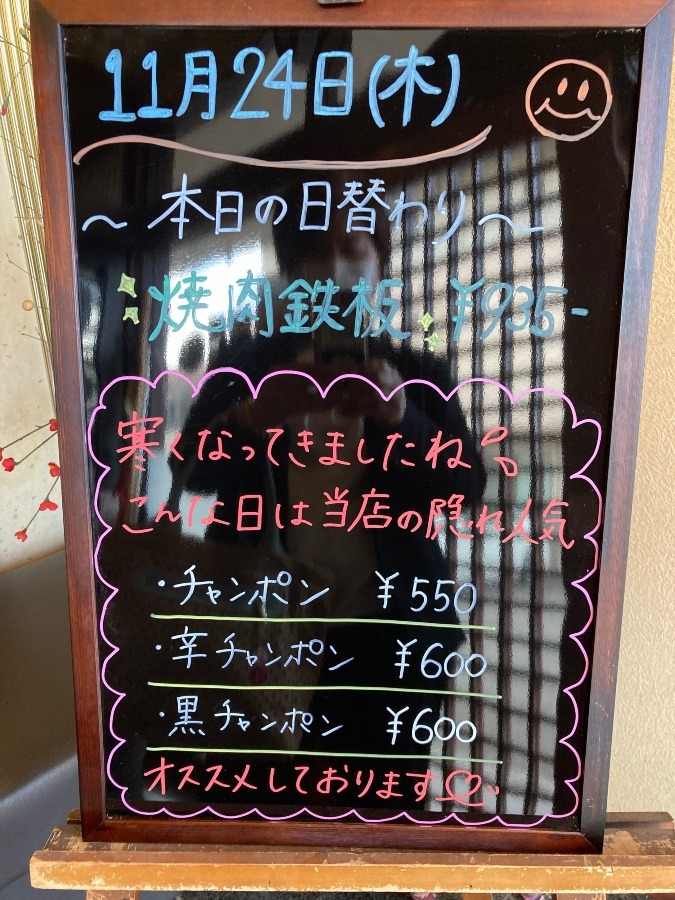 11月24日(木)
～本日の日替わり～
焼肉鉄板 ¥935-
寒くなってきましたね
こんな日は当店の隠れ人気
・チャンポン ¥550
・辛チャンポン ¥600
・黒チャンポン ¥600
オススメしております♡